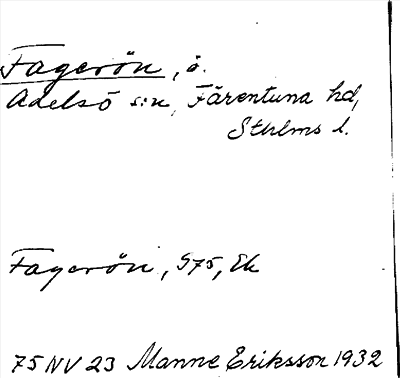 Fagerön, ö.
Adelsö s:n, Färentuna hd,
Sthlms l.
Fagerön, S75, Ek
75 NV 23 Manne Eriksson 1932